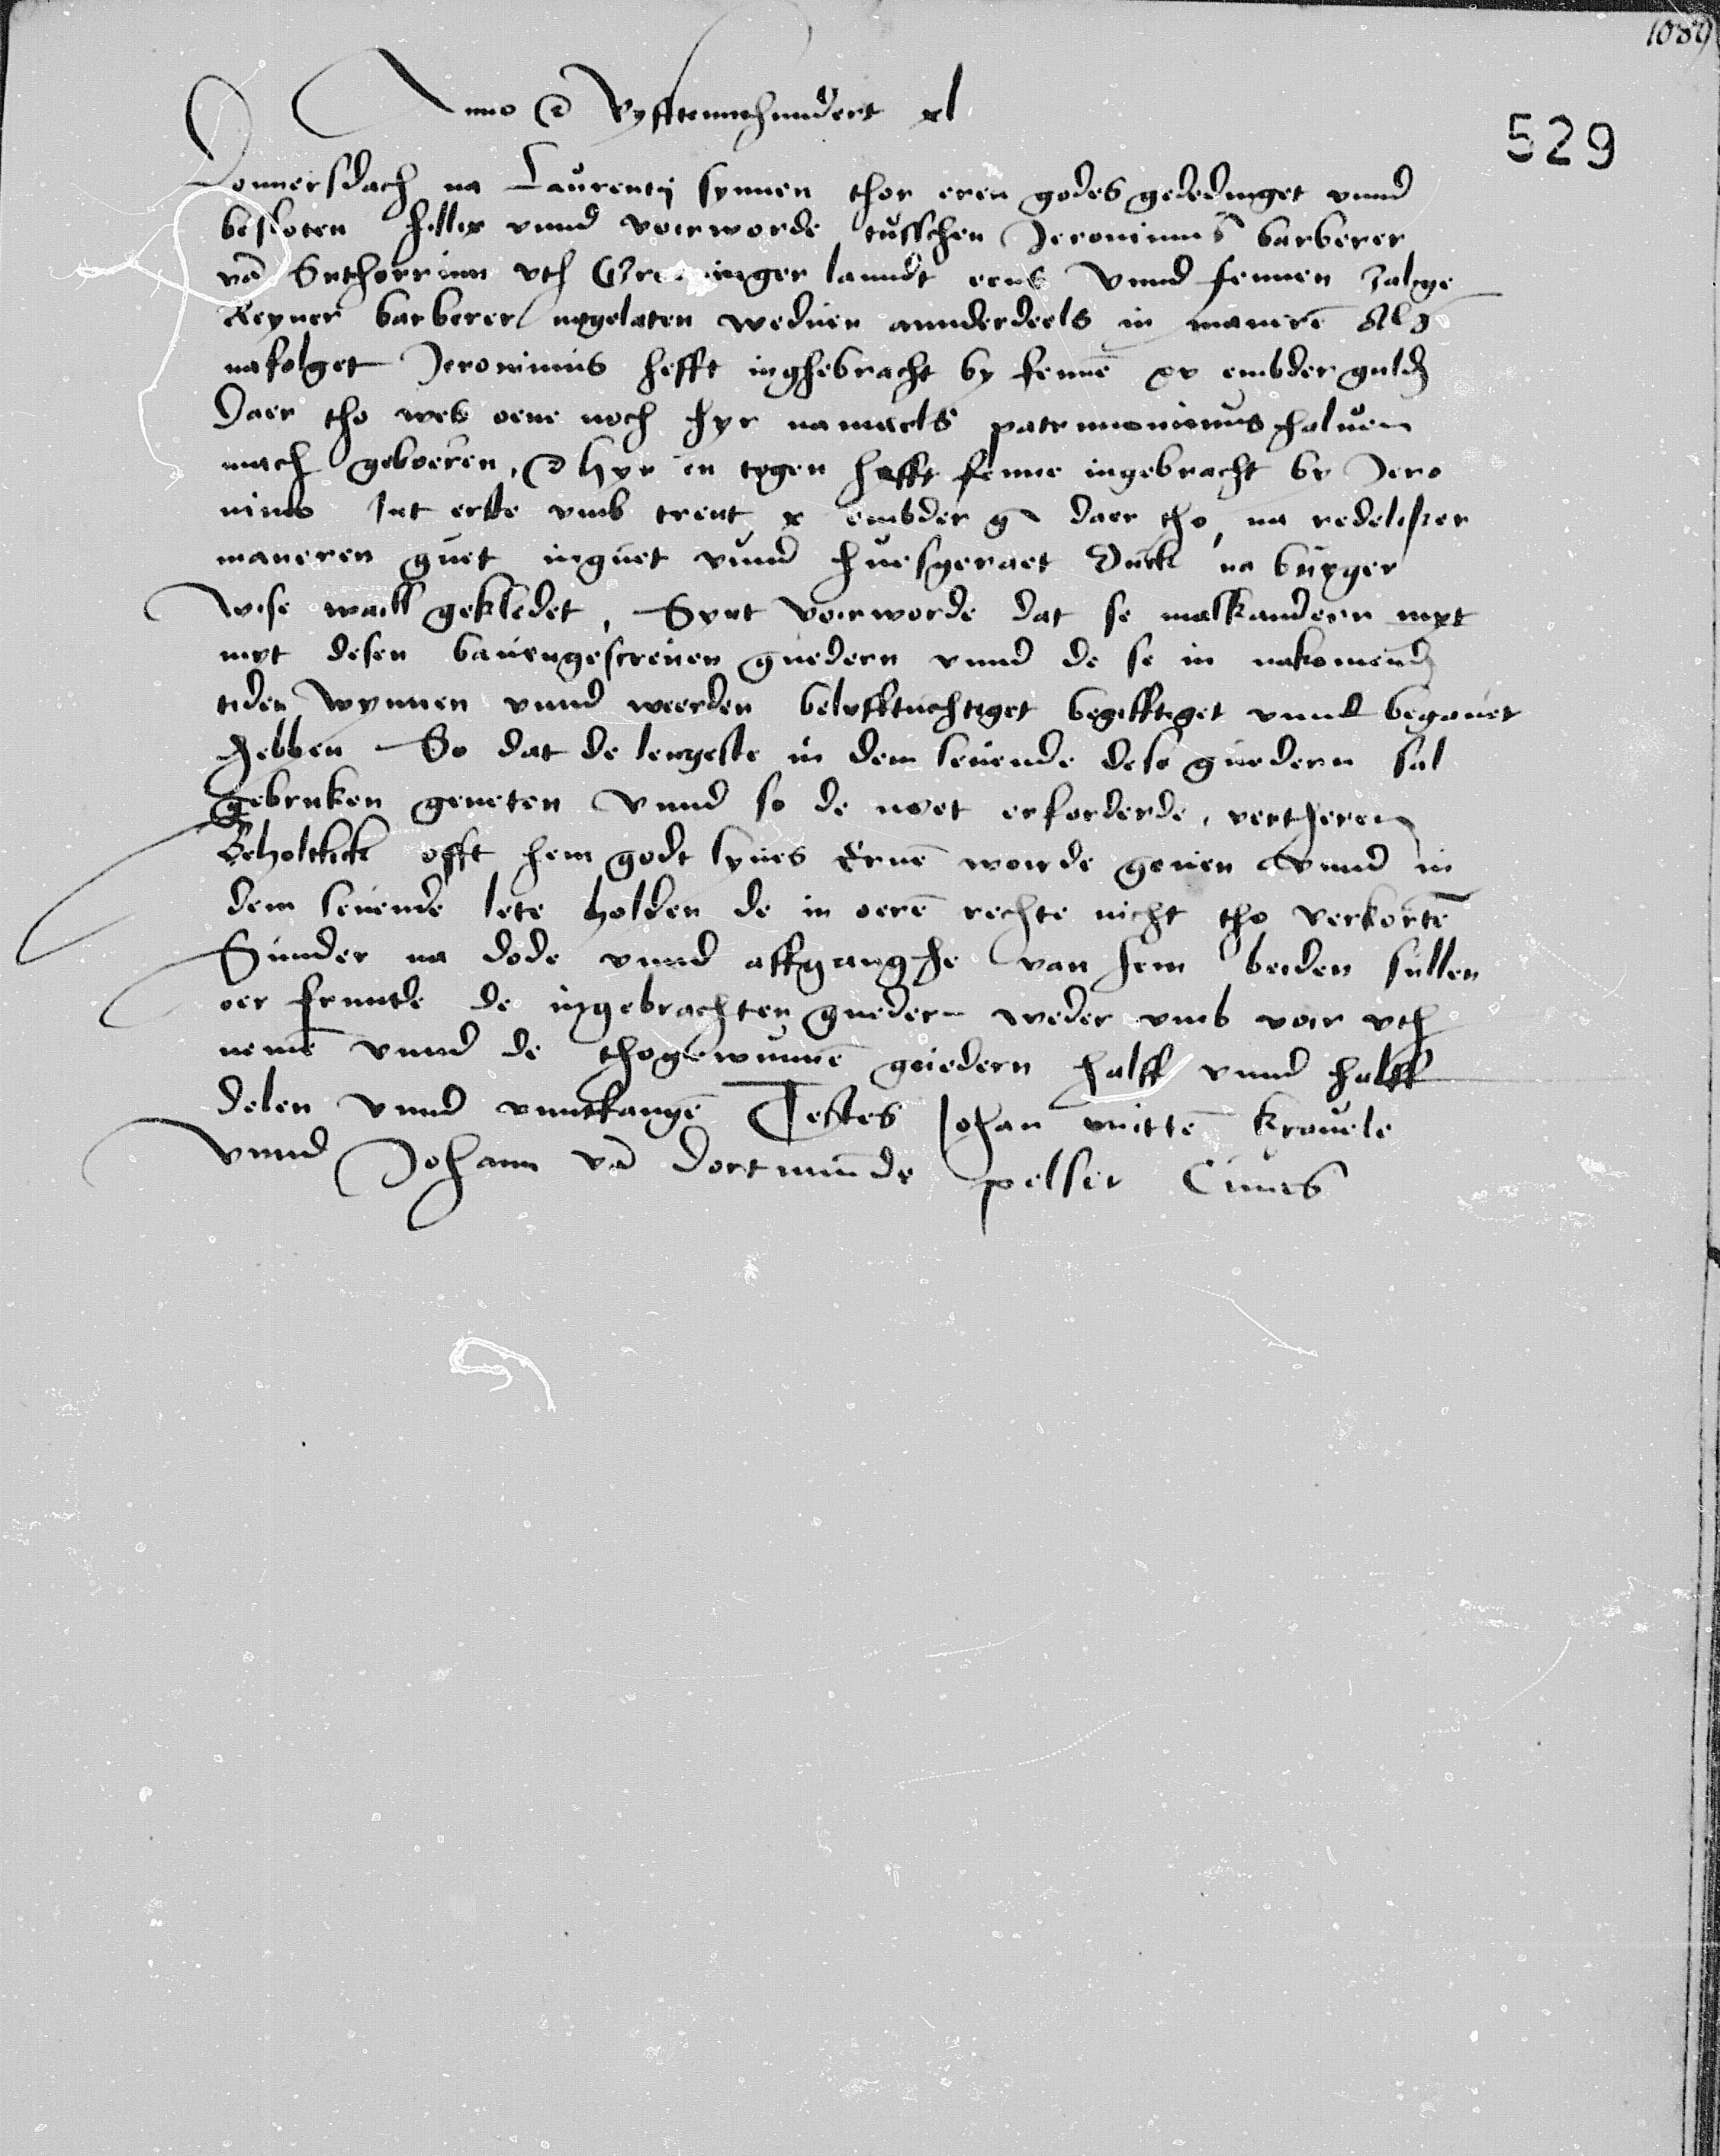 1089
Anno &c Vyfftennhundert xl
529
Donnersdach na Laurentij synnen thor eren godes gededinget vnnd
besloten hillix vnnd voirworde tusschen Jeronimus barberer
vā vth Gro inger lanndt eens Vnnd fennen Zalige
Reyner barberer nagelaten weduen annderdeels in manerē Als
nafolget Jeronimus hefft inghebracht by fennē xx embder guldñ
Daer tho wes oene noch hyr namaels patrimonimus haluen
mach geboeren, &c Hyr en tegen hefft fenne ingebracht by Jero
nimo Int erste vmb trent x embder g daer tho na redeliker
maneren guet inguet vnnd huesgeraet Durk na burger
Wise waill gekledet, Synt voirworde dat se malkandern myt
myt desen bauengescreuen guedern vnnd de se in nakomend
tiden wynnen vnnd weerden belyfftuchtiget begifftiget vnnd begauet
hebben So dat de lengeste in dem leuende dese guedern sal
gebruken geneten Vnnd so de noet erforderde, vertheren
Beholtlick offt hem godt lyues Eruē worde geuen Vnnd in
dem leuende lete holden de in oerē rechte nicht tho verkortē
Sunder na dode vnnd affganghe van hem beiden sullen
oer frunde de ingebrachten guedern weder vmb voir vth
nemē vnnd de thogewunnē guedern halff vnnd halff
delen Vnnd vnntfangē Testes Johan mittē krouele
Vnnd Johann vā dortmunde pelser Ciues